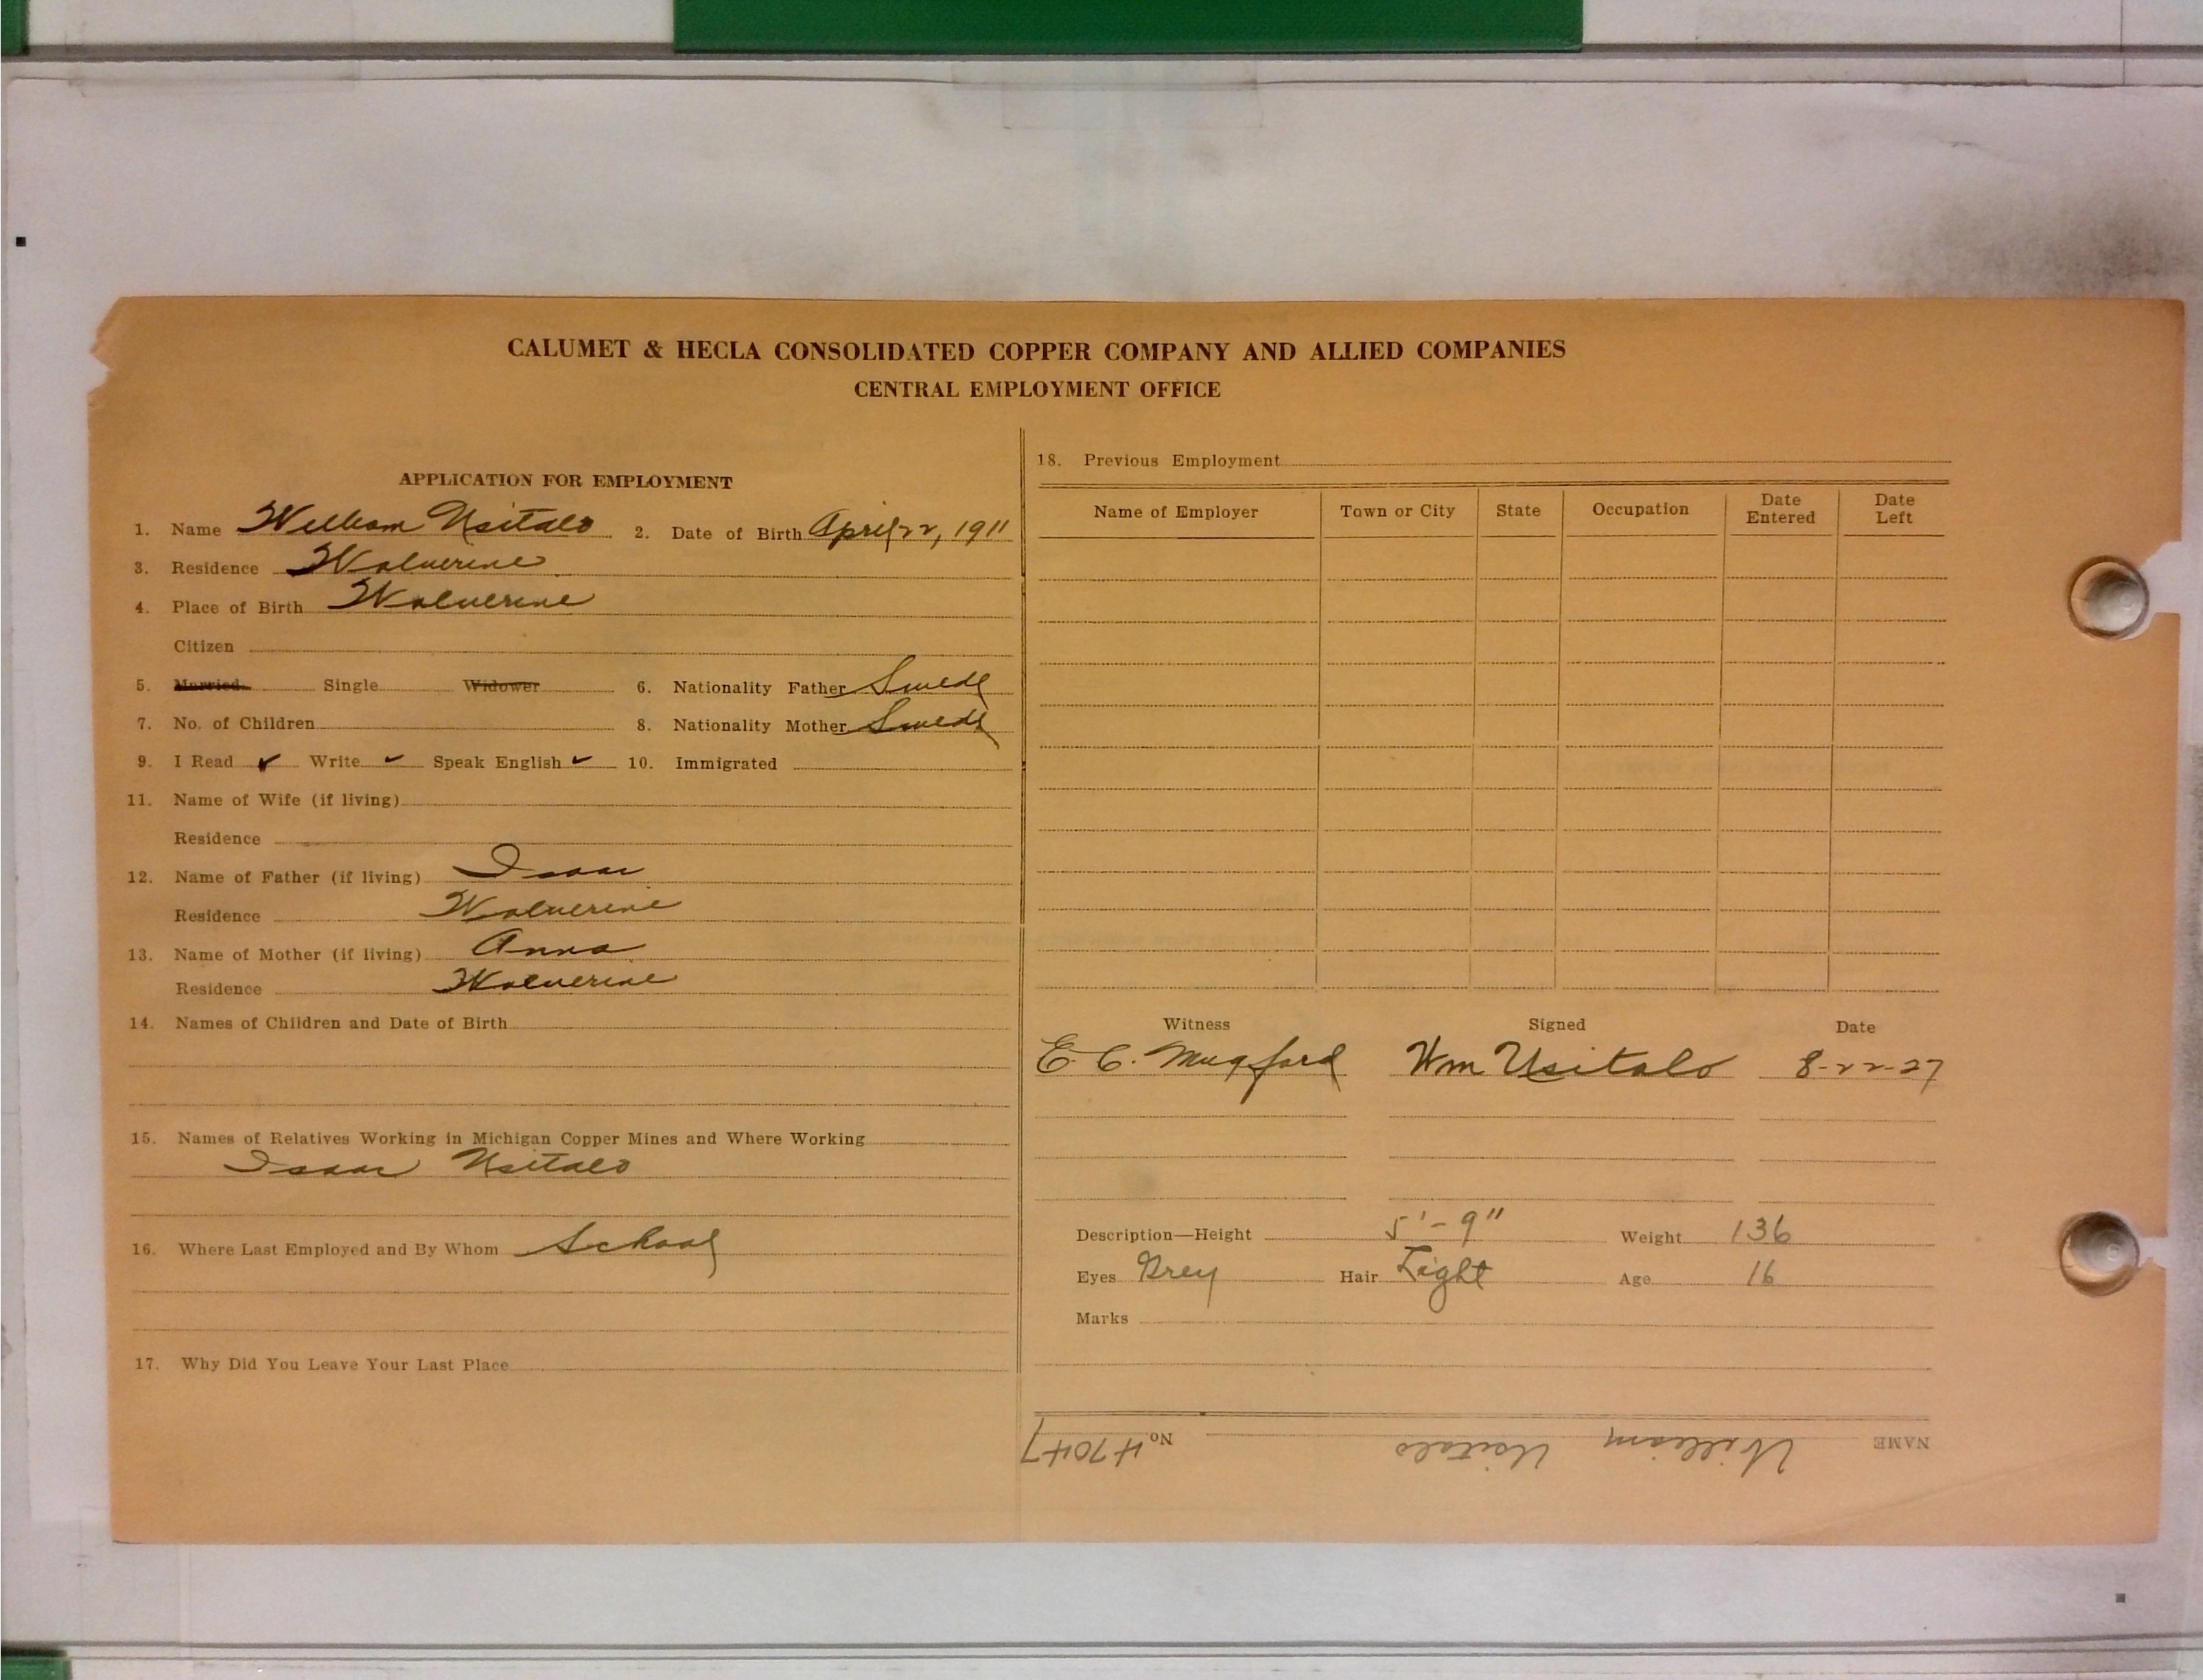 CALUMET & HECLA CONSOLIDATED COPPER COMPANY AND ALLIED COMPANIES
CENTRAL EMPLOYMENT OFFICE
APPLICATION FOR EMPLOYMENT
1. Name William Usitalo 2. Date of Birth April 22, 1911
3. Residence Wolverine
4. Place of Birth Wolverine
Citizen
5. Married Single Widower 6. Nationality Father Swede
7. No. of Children 8. Nationality Mother Swede
9. I Read ✓ Write ✓ Speak English ✓ 10. Immigrated
11. Name of Wife (if living)
Residence
12. Name of Father (if living) Isaac
Residence Wolverine
13. Name of Mother (if living) Anna
Residence Wolverine
14. Names of Children and Date of Birth
15. Names of Relatives Working in Michigan Copper Mines and Where Working
Isaac Usitalo
16. Where Last Employed and By Whom School
17. Why Did You Leave Your Last Place
18. Previous Employment
Name of Employer Town or City State Occupation Date Entered Date Left
Witness Signed Date
E. C. Mugford Wm Usitalo 8-22-27
Description—Height 5'-9" Weight 136
Eyes Grey Hair Light Age 16
Marks
NAME William Usitalo No 47047